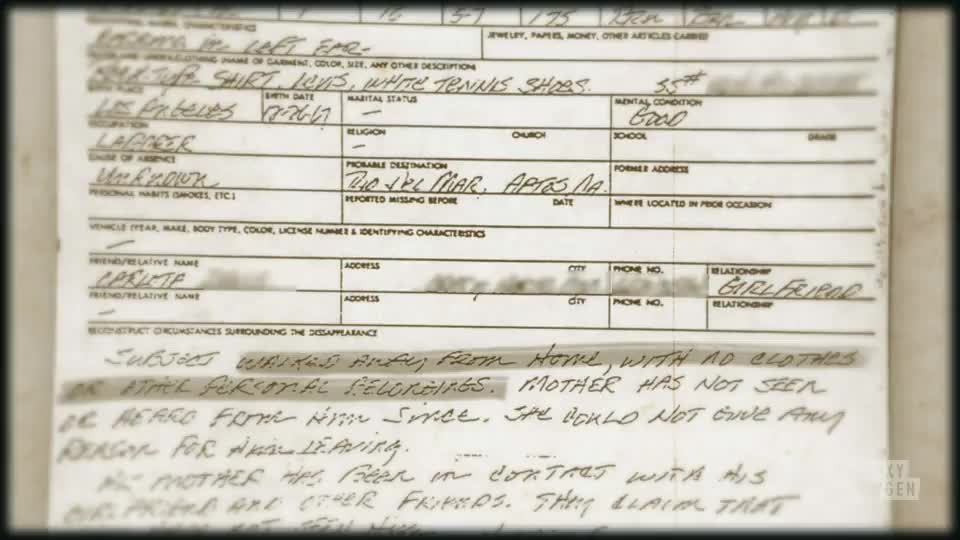 1 16 5-7 175
JEWELRY, PAPERS, MONEY, OTHER ARTICLES CARRIED
IN LEFT EAR-
(NAME OF GARMENT, COLOR, SIZE, ANY OTHER DESCRIPTION)
SHIRT, LEVIS, WHITE TENNIS SHOES. SS#
BIRTH PLACE BIRTH DATE MARITAL STATUS MENTAL CONDITION
LOS ANGELES — GOOD
OCCUPATION RELIGION CHURCH SCHOOL GRADE
LABORER —
CAUSE OF ABSENCE PROBABLE DESTINATION FORMER ADDRESS
UNKNOWN RIO DEL MAR, APTOS, CA.
PERSONAL HABITS (SMOKES, ETC.) REPORTED MISSING BEFORE DATE WHERE LOCATED IN PRIOR OCCASION
VEHICLE (YEAR, MAKE, BODY TYPE, COLOR, LICENSE NUMBER & IDENTIFYING CHARACTERISTICS
—
FRIEND/RELATIVE NAME ADDRESS CITY PHONE NO. RELATIONSHIP
GIRLFRIEND
FRIEND/RELATIVE NAME ADDRESS CITY PHONE NO. RELATIONSHIP
—
RECONSTRUCT CIRCUMSTANCES SURROUNDING THE DISSAPPEARANCE
SUBJECT WALKED AWAY FROM HOME, WITH NO CLOTHES
OR OTHER PERSONAL BELONGINGS. MOTHER HAS NOT SEEN
OR HEARD FROM HIM SINCE. SHE COULD NOT GIVE ANY
REASON FOR HIM LEAVING.
MOTHER HAS BEEN IN CONTACT WITH HIS
GIRLFRIEND AND OTHER FRIENDS. THEY CLAIM THAT
NOT SEEN
XY
GEN